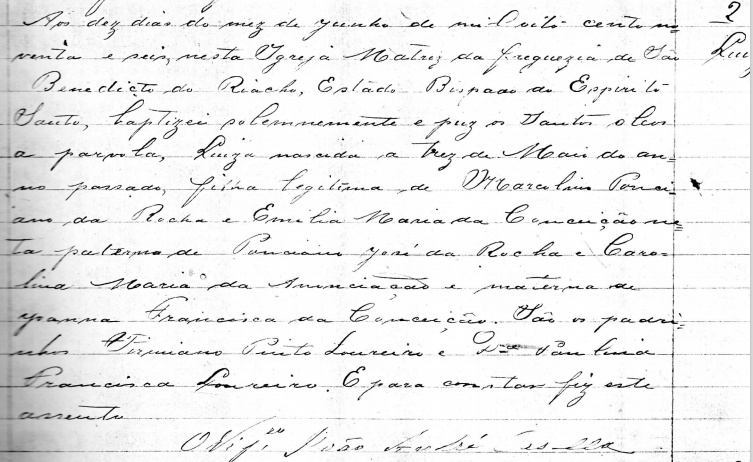 2
Aos dez dias do mez de Junho de mil oito cento no=
venta e seis, nesta Igreja Matriz da freguezia de São
Benedicto do Riacho, Estado Bispado do Espirito
Santo, baptizei solemnemente e puz os Santos oleos
a parvola, Luiza nascida a trez de Maio do an=
no passado, filha legitima de Marcolino Ponci=
ano da Rocha e Emilia Maria da Conceição ne=
ta paterna de Ponciano José da Rocha e Caro=
lina Maria da Anunciação e materna de
Yoanna Francisca da Conceição. São os padri=
nhos Firmiano Pinto Loureiro e D.na Paulina
Francisca Loureiro. E para constar fiz este
assento
O Vig.ro João André